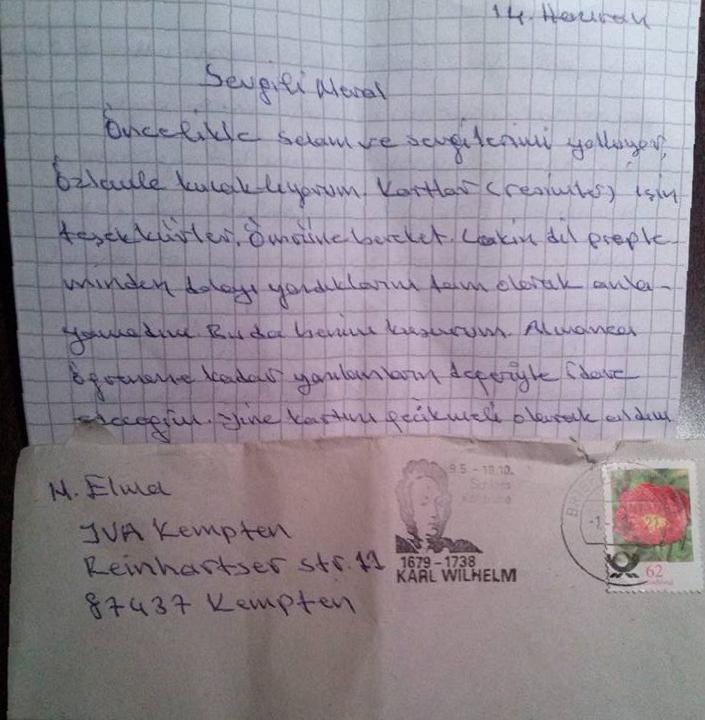 14. Haziran
Sevgili Meral
Öncelikle selam ve sevgilerimi yolluyor,
Özlemle kucaklıyorum. Kartlar (resimler) için
teşekkürler. Ömrüne bereket. Lakin dil proble-
minden dolayı yazdıklarını tam olarak anla-
yamadım. Bu da benim kusurum. Almanca
öğrenene kadar yazılanların değeriyle idare
edeceğim. Yine kartını gecikmeli olarak aldım
M. Elma
JVA Kempten
Reinhartser str. 11
87437 Kempten
9.5. - 18.10.
Schloss
1679 - 1738
KARL WILHELM
BRIEF
62